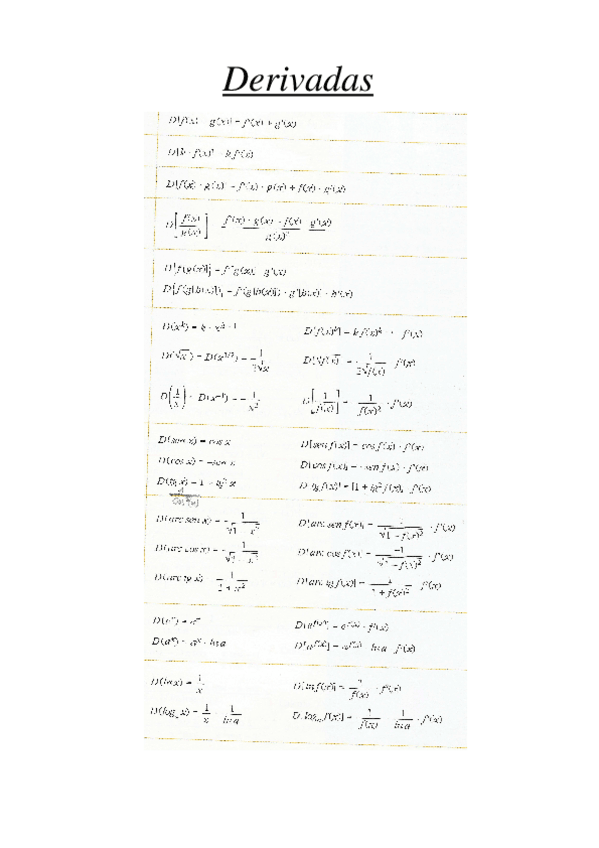 Derivadas
D[f(x) g(x)] = f'(x) + g'(x)
D[k · f(x)] = k f'(x)
D[f(x) · g(x)] = f'(x) · g(x) + f(x) · g'(x)
D[f(x)/g(x)] f'(x) · g(x) - f(x) g'(x) / g(x)²
D[f(g(x))] = f' g(x) g'(x)
D[f(g(h(x)))] = f'(g(h(x))) · g'(h(x)) · h'(x)
D(x^k) = k · x^(k-1) D[f(x)^k] = k f(x)^k f'(x)
D(√x) = D(x^(1/2)) = 1/(2√x) D[√f(x)] = 1/(2√f(x)) f'(x)
D(1/x) D(x^-1) = - 1/x² D[1/f(x)] = 1/f(x)² · f'(x)
D(sen x) = cos x D[sen f(x)] = cos f(x) · f'(x)
D(cos x) = -sen x D[cos f(x)] = - sen f(x) · f'(x)
D(tg x) = 1 + tg² x D[tg f(x)] = [1 + tg² f(x)] f'(x)
D(arc sen x) = 1/√(1 - x²) D[arc sen f(x)] = 1/√(1 - f(x)²) · f'(x)
D(arc cos x) = -1/√(1 - x²) D[arc cos f(x)] = -1/√(1 - f(x)²) · f'(x)
D(arc tg x) = 1/(1 + x²) D[arc tg f(x)] = 1/(1 + f(x)²) f'(x)
D(e^x) = e^x D[e^f(x)] = e^f(x) · f'(x)
D(a^x) = a^x · ln a D[a^f(x)] = a^f(x) · ln a f'(x)
D(ln x) = 1/x D[ln f(x)] = 1/f(x) · f'(x)
D(log_a x) = 1/x 1/ln a D[log_a f(x)] = 1/f(x) 1/ln a · f'(x)